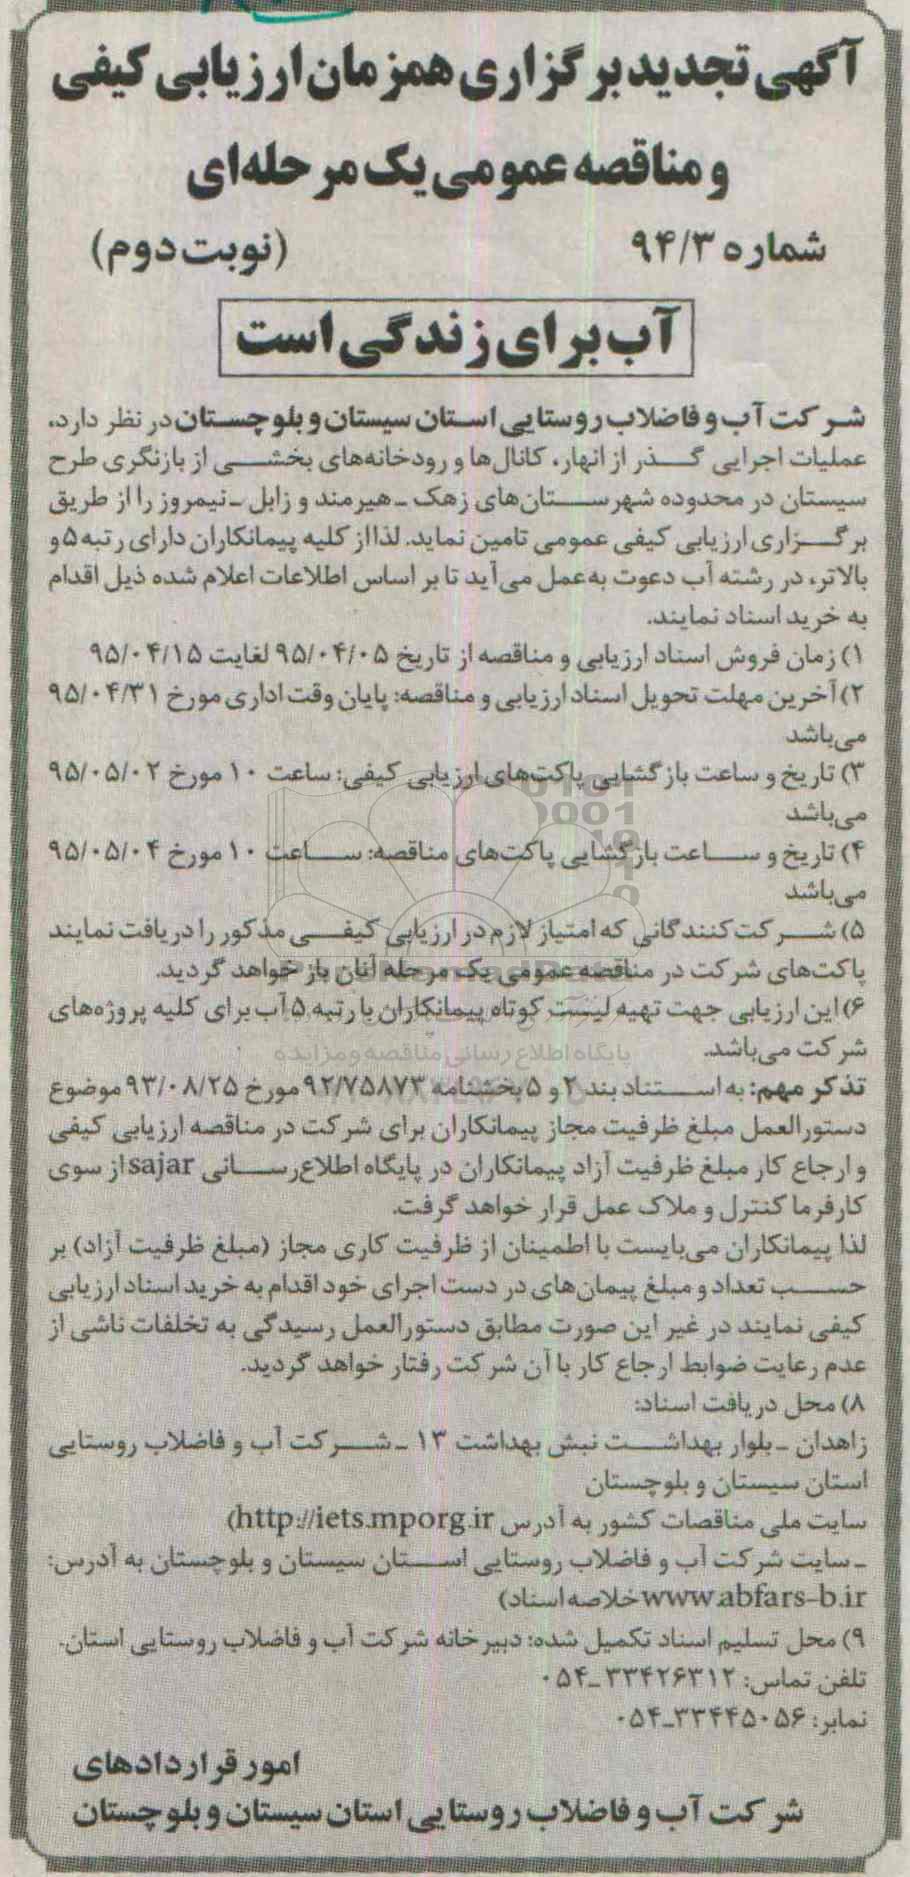 آگهی تجدید برگزاری همزمان ارزیابی کیفی
و مناقصه عمومی یک مرحله‌ای
شماره ۹۴/۳ (نوبت دوم)
آب برای زندگی است
شرکت آب و فاضلاب روستایی استان سیستان و بلوچستان در نظر دارد،
عملیات اجرایی گذر از انهار، کانال‌ها و رودخانه‌های بخشی از بازنگری طرح
سیستان در محدوده شهرستان‌های زهک ـ هیرمند و زابل ـ نیمروز را از طریق
برگزاری ارزیابی کیفی عمومی تامین نماید. لذا از کلیه پیمانکاران دارای رتبه ۵ و
بالاتر، در رشته آب دعوت به‌عمل می‌آید تا بر اساس اطلاعات اعلام شده ذیل اقدام
به خرید اسناد نمایند.
۱) زمان فروش اسناد ارزیابی و مناقصه از تاریخ ۹۵/۰۴/۰۵ لغایت ۹۵/۰۴/۱۵
۲) آخرین مهلت تحویل اسناد ارزیابی و مناقصه: پایان وقت اداری مورخ ۹۵/۰۴/۳۱
می‌باشد
۳) تاریخ و ساعت بازگشایی پاکت‌های ارزیابی کیفی: ساعت ۱۰ مورخ ۹۵/۰۵/۰۲
می‌باشد
۴) تاریخ و ساعت بازگشایی پاکت‌های مناقصه: ساعت ۱۰ مورخ ۹۵/۰۵/۰۴
می‌باشد
۵) شرکت‌کنندگانی که امتیاز لازم در ارزیابی کیفی مذکور را دریافت نمایند
پاکت‌های شرکت در مناقصه عمومی یک مرحله آنان باز خواهد گردید.
۶) این ارزیابی جهت تهیه لیست کوتاه پیمانکاران با رتبه ۵ آب برای کلیه پروژه‌های
شرکت می‌باشد.
پایگاه اطلاع رسانی مناقصه و مزایده
تذکر مهم: به استناد بند ۲ و ۵ بخشنامه ۹۲/۷۵۸۷۳ مورخ ۹۳/۰۸/۲۵ موضوع
دستورالعمل مبلغ ظرفیت مجاز پیمانکاران برای شرکت در مناقصه ارزیابی کیفی
و ارجاع کار مبلغ ظرفیت آزاد پیمانکاران در پایگاه اطلاع‌رسانی sajar از سوی
کارفرما کنترل و ملاک عمل قرار خواهد گرفت.
لذا پیمانکاران می‌بایست با اطمینان از ظرفیت کاری مجاز (مبلغ ظرفیت آزاد) بر
حسب تعداد و مبلغ پیمان‌های در دست اجرای خود اقدام به خرید اسناد ارزیابی
کیفی نمایند در غیر این صورت مطابق دستورالعمل رسیدگی به تخلفات ناشی از
عدم رعایت ضوابط ارجاع کار با آن شرکت رفتار خواهد گردید.
۸) محل دریافت اسناد:
زاهدان ـ بلوار بهداشت نبش بهداشت ۱۳ ـ شرکت آب و فاضلاب روستایی
استان سیستان و بلوچستان
سایت ملی مناقصات کشور به آدرس http://iets.mporg.ir)
ـ سایت شرکت آب و فاضلاب روستایی استان سیستان و بلوچستان به آدرس:
www.abfars-b.ir خلاصه اسناد)
۹) محل تسلیم اسناد تکمیل شده: دبیرخانه شرکت آب و فاضلاب روستایی استان.
تلفن تماس: ۳۳۴۲۶۳۱۲-۰۵۴
نمابر: ۳۳۴۴۵۰۵۶-۰۵۴
امور قراردادهای
شرکت آب و فاضلاب روستایی استان سیستان و بلوچستان